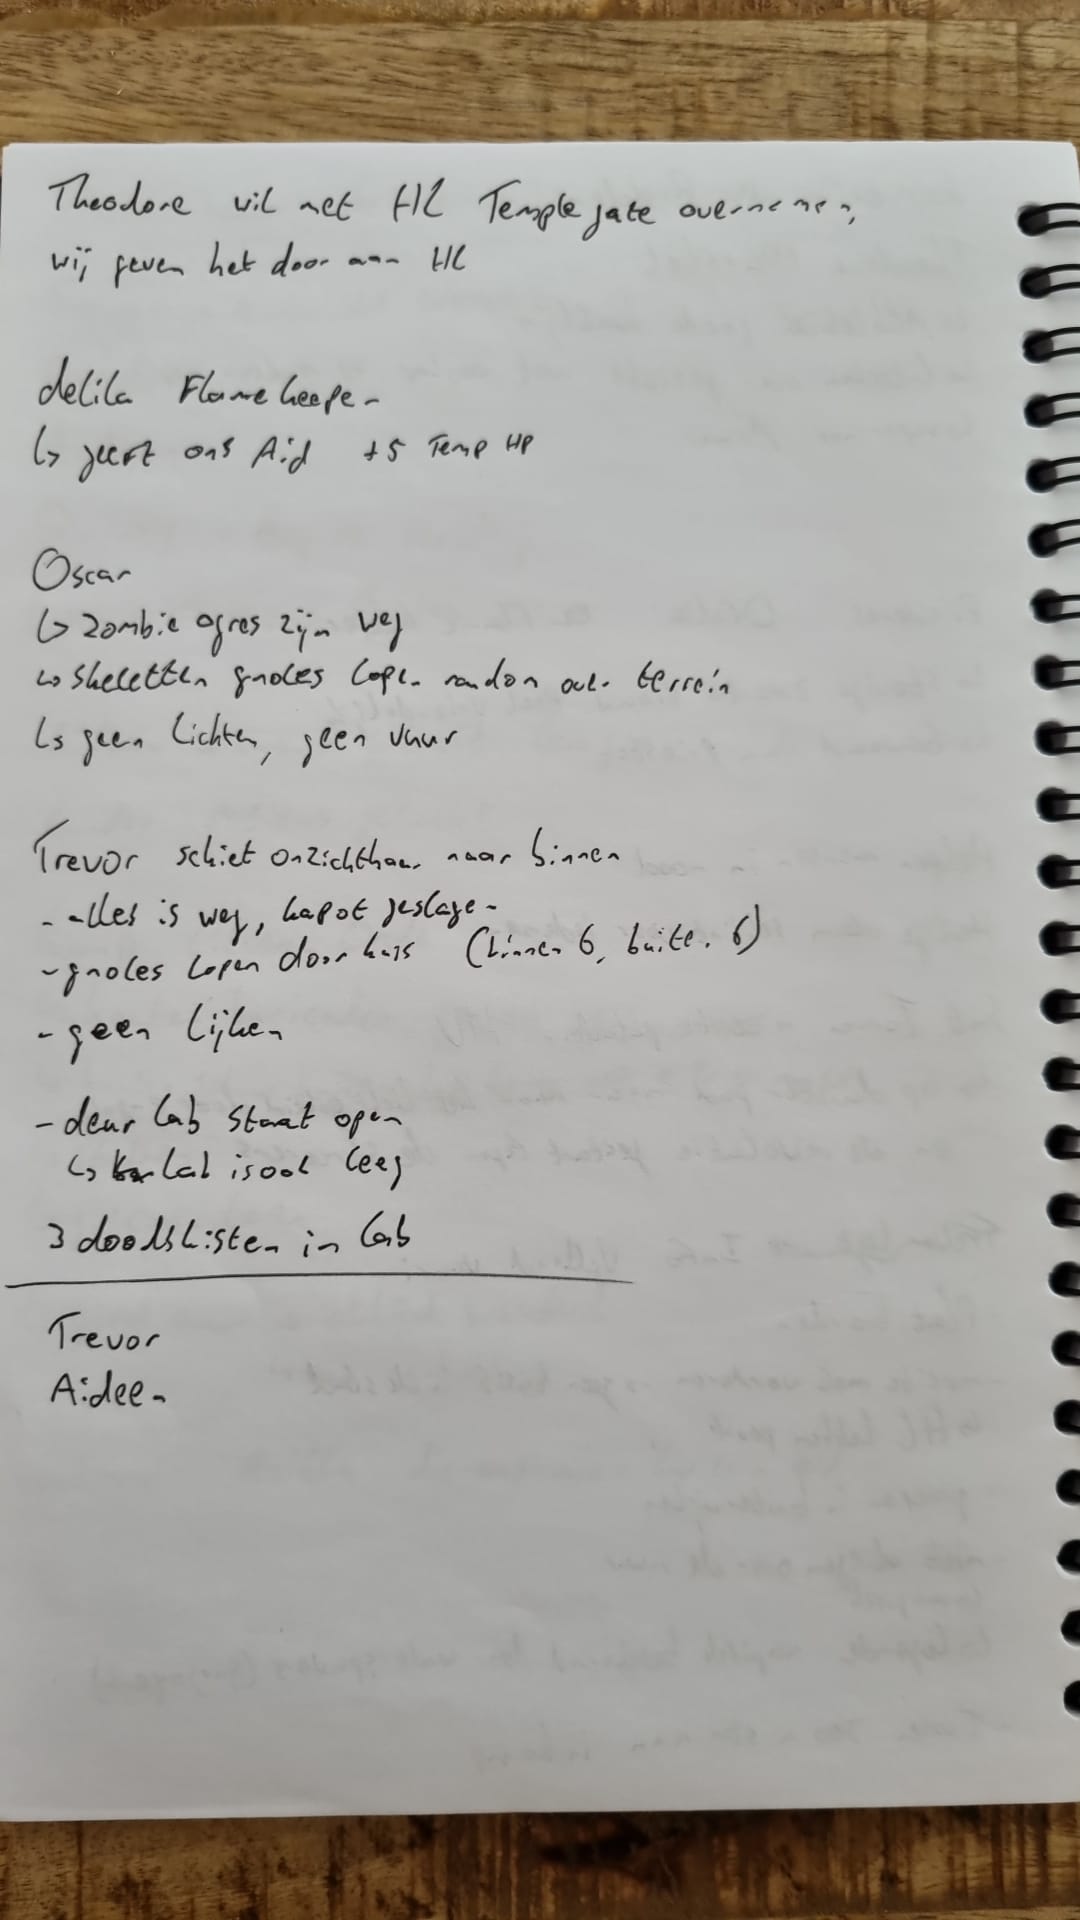 Theodore wil met HL Templegate overnemen,
wij geven het door aan HL
delila Flamekeeper
↳ geeft ons Aid +5 Temp HP
Oscar
↳ zombie ogres zijn weg
↳ skeletten gnoles lopen random over terrein
↳ geen lichten, geen vuur
Trevor schiet onzichtbaar naar binnen
- alles is weg, kapot geslagen
- gnoles lopen door huis (binnen 6, buiten 6)
- geen lijken
- deur lab staat open
↳ lab is ook leeg
3 doodskisten in lab
Trevor
Aideen